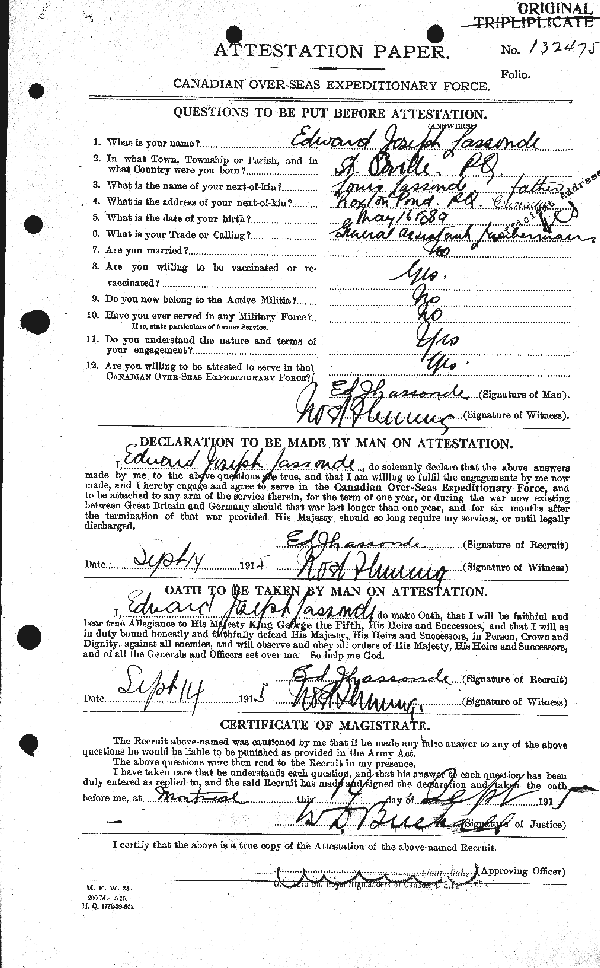 ORIGINAL
TRIPLIPLICATE
ATTESTATION PAPER.
No. 132475
Folio.
CANADIAN OVER-SEAS EXPEDITIONARY FORCE.
QUESTIONS TO BE PUT BEFORE ATTESTATION.
(ANSWERS)
1. What is your name? Edward Joseph Lassonde
2. In what Town, Township or Parish, and in
what Country were you born? P.Q.
3. What is the name of your next-of-kin? Louis Lassonde father
4. What is the address of your next-of-kin? Roxton Pond. P.Q.
5. What is the date of your birth? May 16 1889
6. What is your Trade or Calling?
7. Are you married? No
8. Are you willing to be vaccinated or re-
vaccinated? Yes.
9. Do you now belong to the Active Militia? No
10. Have you ever served in any Military Force? No
If so, state particulars of former Service.
11. Do you understand the nature and terms of
your engagement? Yes
12. Are you willing to be attested to serve in the
CANADIAN OVER-SEAS EXPEDITIONARY FORCE? Yes.
Ed J Lassonde (Signature of Man).
(Signature of Witness).
DECLARATION TO BE MADE BY MAN ON ATTESTATION.
I, Edward Joseph Lassonde, do solemnly declare that the above answers
made by me to the above questions are true, and that I am willing to fulfil the engagements by me now
made, and I hereby engage and agree to serve in the Canadian Over-Seas Expeditionary Force, and
to be attached to any arm of the service therein, for the term of one year, or during the war now existing
between Great Britain and Germany should that war last longer than one year, and for six months after
the termination of that war provided His Majesty should so require my services, or until legally
discharged.
Ed J Lassonde (Signature of Recruit)
Date Sept 14 1915 (Signature of Witness)
OATH TO BE TAKEN BY MAN ON ATTESTATION.
I, Edward Joseph Lassonde, do make Oath, that I will be faithful and
bear true Allegiance to His Majesty King George the Fifth, His Heirs and Successors, and that I will as
in duty bound honestly and faithfully defend His Majesty, His Heirs and Successors, in Person, Crown and
Dignity, against all enemies, and will observe and obey all orders of His Majesty, His Heirs and Successors,
and of all the Generals and Officers set over me. So help me God.
Ed J Lassonde (Signature of Recruit)
Date Sept 14 1915 (Signature of Witness)
CERTIFICATE OF MAGISTRATE.
The Recruit above-named was cautioned by me that if he made any false answer to any of the above
questions he would be liable to be punished as provided in the Army Act.
The above questions were then read to the Recruit in my presence.
I have taken care that he understands each question, and that his answer to each question has been
duly entered as replied to, and the said Recruit has made and signed the declaration and taken the oath
before me, at Montreal this 14 day of Sept 1915
(Signature of Justice)
I certify that the above is a true copy of the Attestation of the above-named Recruit.
(Approving Officer)
M. F. W. 23.